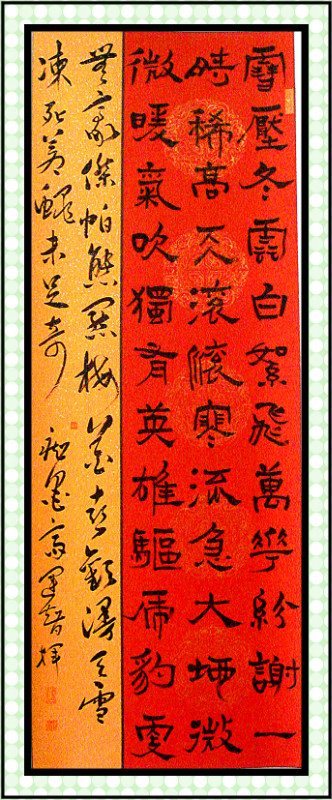 雪壓冬雲白絮飛萬華紛謝一
時稀高天滾滾寒流急大地微
微暖氣吹獨有英雄驅虎豹更
無豪傑怕熊羆梅花喜歡漫天雪
凍死蒼蠅未足奇